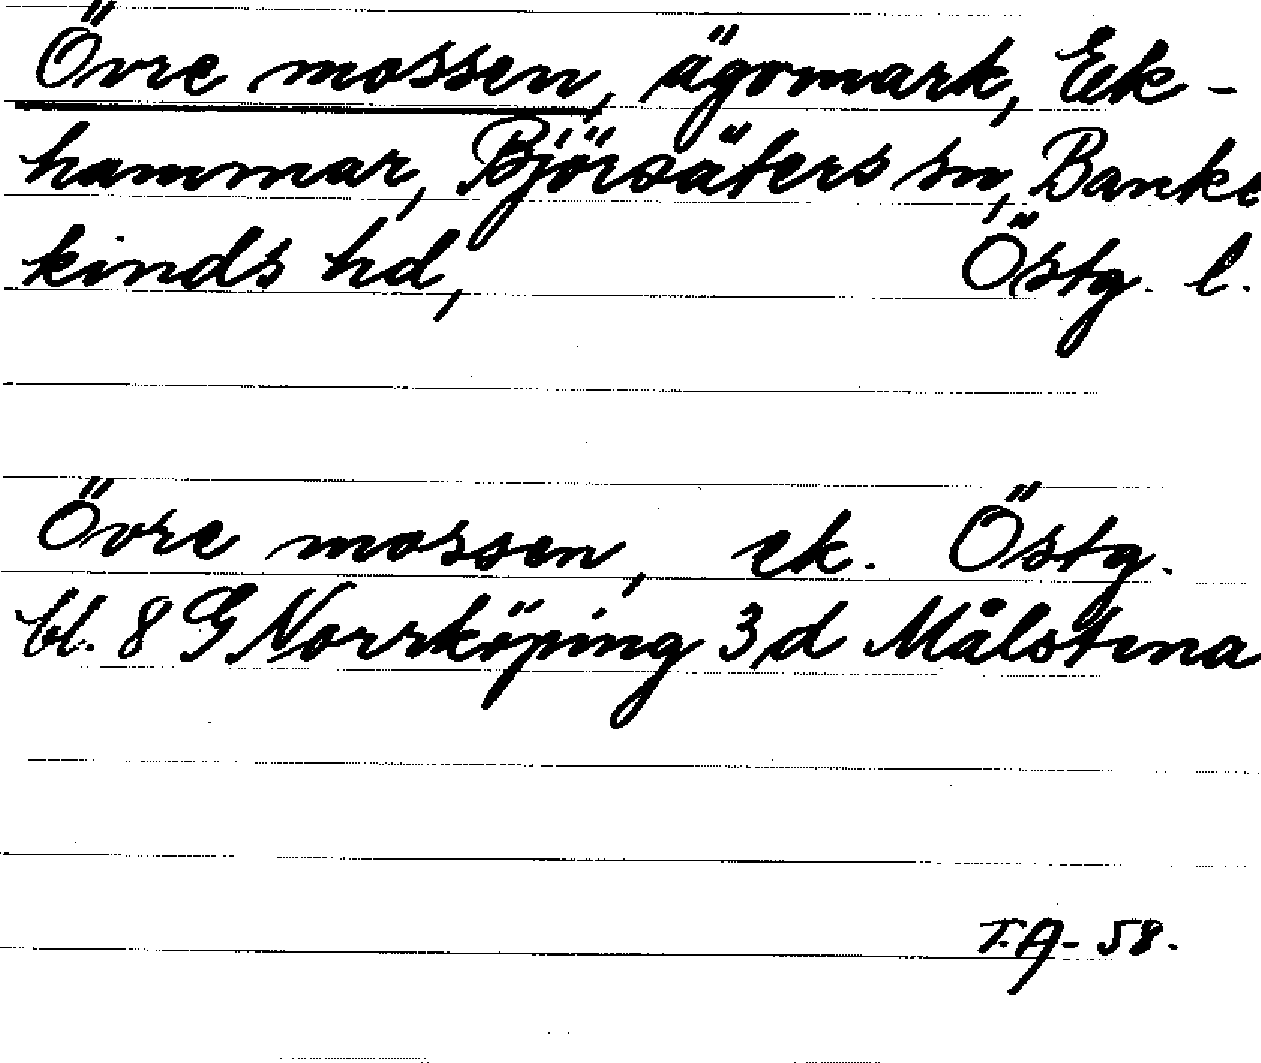 Övre mossen, ägomark, Eek-
hammar, Björsäters sn, Banke
kinds hd, Östg. l.
Övre mossen, ek. Östg.
bl. 8 G Norrköping 3d Målstena
T.A-58.